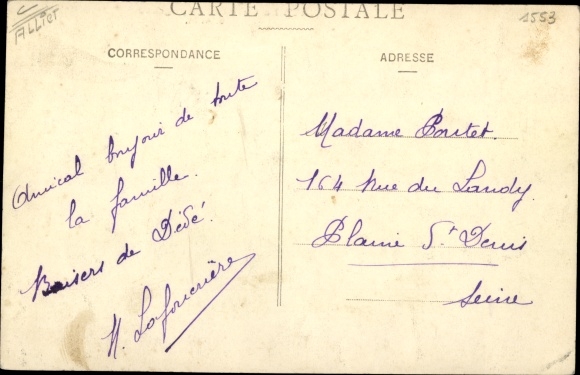 C
ALLIER
1553
CARTE POSTALE
CORRESPONDANCE
ADRESSE
Amical bonjour de toute
la famille.
Baisers de Dédé.
Madame Poutet.
164 Rue du Landy.
Plaine St Denis
Seine